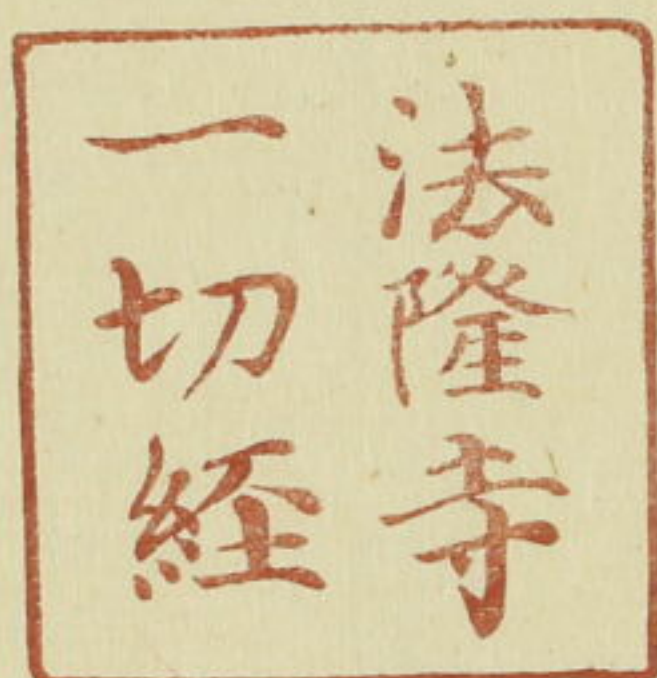 法隆寺
一切経